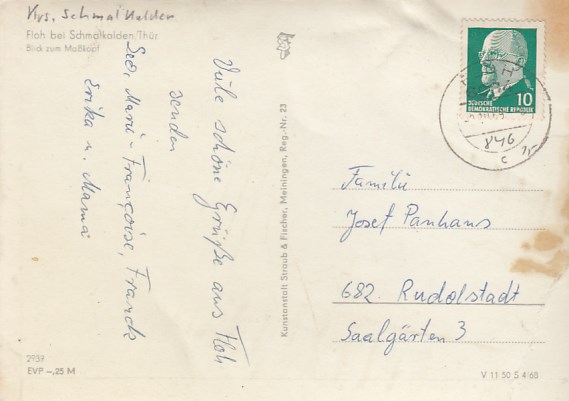 Krs. Schmalkalden
Floh bei Schmalkalden/Thür.
Blick zum Maßkopf
Viele schöne Grüße aus Floh
senden
Marie-Françoise, Franck
Erika u. Mama
Kunstanstalt Straub & Fischer, Meiningen, Reg.-Nr. 23
10
DEUTSCHE
DEMOKRATISCHE REPUBLIK
846
c
Familie
Josef Panhans
682 Rudolstadt
Saalgärten 3
2959
EVP -,25 M
V 11 50 S 4 68